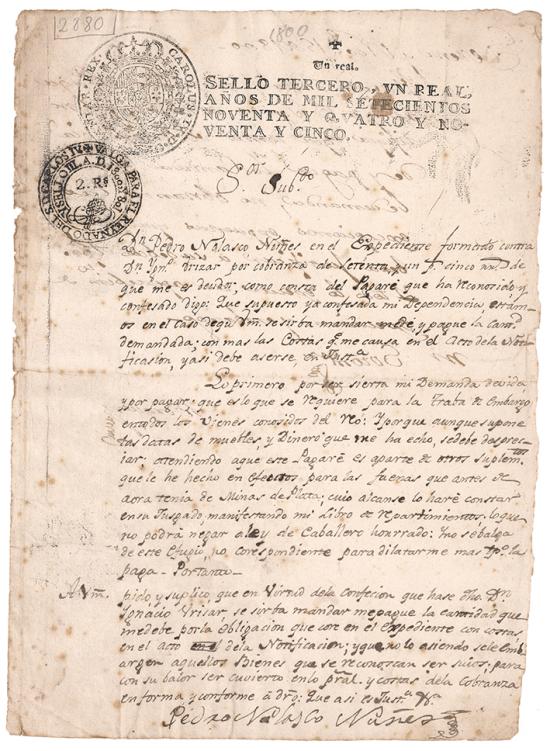 2880
1800
✠
Un real.
SELLO TERCERO, VN REAL,
AÑOS DE MIL SETECIENTOS
NOVENTA Y QVATRO Y NO-
VENTA Y CINCO.
CAROLUS
VALGA PARA EL REINADO DEL S. D. CARLOS IV
2. Rs
Sor Sub.do
Dn Pedro Nolasco Nuñes en el Expediente formado contra
Dn Ygno. Urizar por cobranza de setenta y un p.s cinco rr.s de
que me es deudor, como consta del Papare que ha reconosido, y
confesado Digo: Que supuesto ya confesada mi Dependencia, estam-
os en el caso de q.e Vm. se sirba mandar me dé y pague la Cant.d
demandada; con mas las Costas q.e me causa en el Acto de la Not-
ificasion, y asi debe aserse, en Just.a
Lo primero por ser sierta mi Demanda devida
y por pagar; que es lo que se requiere para la Trata de Embargo
en todos los Vienes conosidos del Reo: Y porque aunque supone
tas datas de muebles y Dinero que me ha echo, se debe despres-
iar; atendiendo aque este Papare es aparte de otros suplem.tos
que le he hecho en efectos para las faenas que antes de
aora tenia de Minas de Plata; cuio alcanse lo haré constar
en su Jusgado, manifestando mi Libro de repartimientos, lo que
no podrá negar a ley de Caballero honrrado: Y no se balga
de este Efugio, no corespondiente para dilatarme mas tpo. la
paga - Por tanto -
A Vm. pido y suplico, que en Virtud de la Confecion que hase dho. Dn
Ignacio Vrisar, se sirba mandar me pague la cantidad que
me debe por la Obligacion que core en el Expediente con costas
en el acto de la Notificacion; y que no lo asiendo se le Emb-
argen aquellos Bienes que se reconoscan ser suios, para
con su balor ser cuvierto en lo pral. y costas de la Cobranza
en forma y conforme a dro: Que asi es Just.a &a
Pedro Nolasco Nuñes